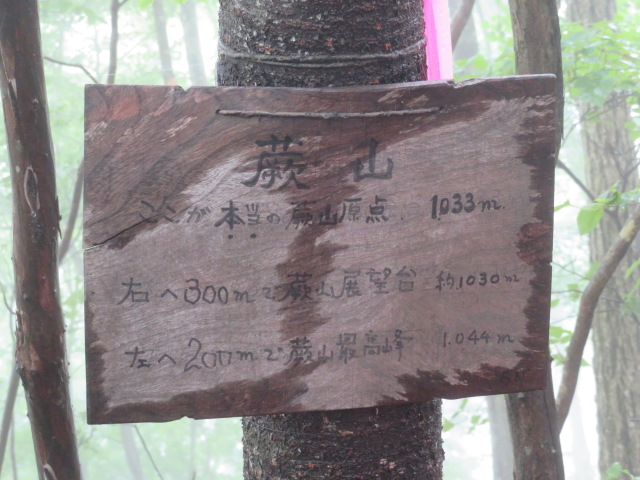 蕨山
ここが本当の蕨山原点 1033m
右へ300mで蕨山展望台 約1030m
左へ200mで蕨山最高峰 1.044m